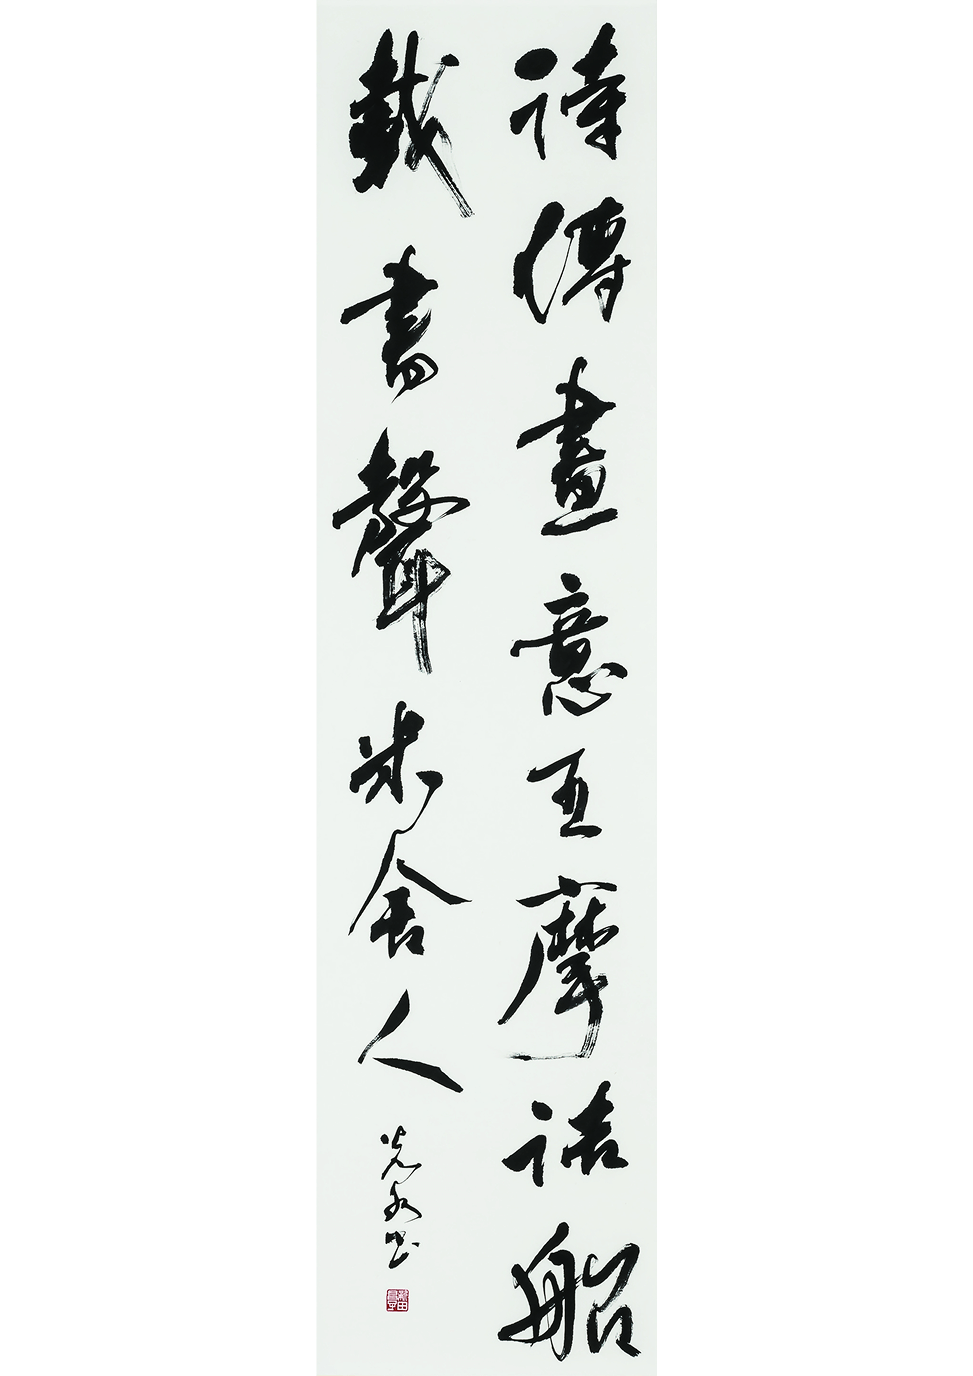 詩傳畫意王摩詰船
載書聲米舍人